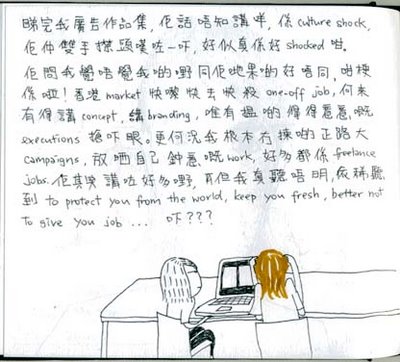 睇完我廣告作品集, 佢話唔知講咩, 係 culture shock,
佢仲雙手頭嘆咗一吓, 好似真係好 shocked 咁.
佢問我覺唔覺我啲嘢同佢哋果啲好唔同, 咁梗
係啦! 香港 market 快嚟快去快殺 one-off job, 何來
有得講 concept, 講 branding, 唯有搵啲得得意意嘅
executions 搶吓眼. 更何況我根本冇揀啲正路大
campaigns, 放晒自己鍾意嘅 work, 好多都係 freelance
jobs. 佢其實講咗好多嘢, 但我真聽唔明, 依稀聽
到 to protect you from the world, keep you fresh, better not
to give you job ... 吓???